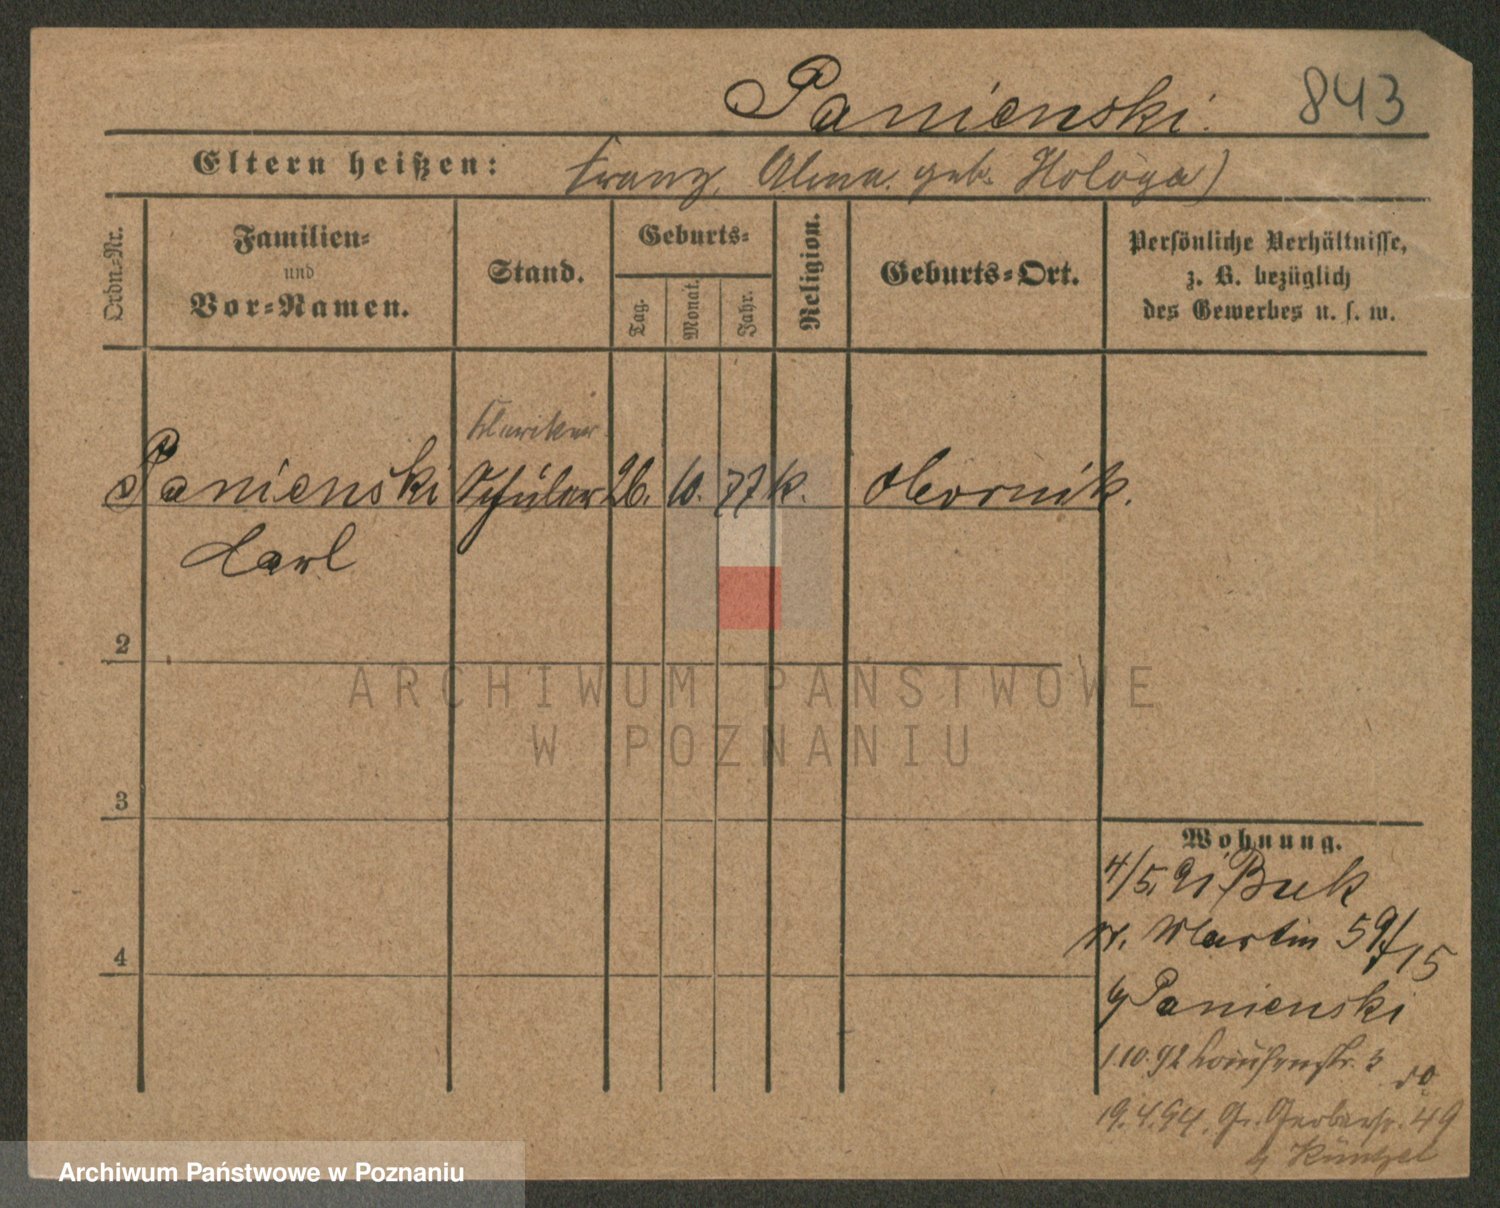 Panienski.
843
Eltern heißen: Franz, Alma geb. Hologa)
Ordn.-Nr.
Familien-
und
Vor-Namen.
Stand.
Geburts-
Tag.
Monat.
Jahr.
Religion.
Geburts-Ort.
Persönliche Verhältnisse,
z. B. bezüglich
des Gewerbes u. s. w.
Kleriker
Panienski Schüler 26. 10. 77 k. Obornik.
Carl
2
3
4
Wohnung.
4/5. 91 Buk
St. Martin 59/15
b/ Panienski
1.10.92 Louisenstr. 3 do.
19.4.94. Gr. Gerberstr. 49
b/ Küntzel
ARCHIWUM PAŃSTWOWE
W POZNANIU
Archiwum Państwowe w Poznaniu